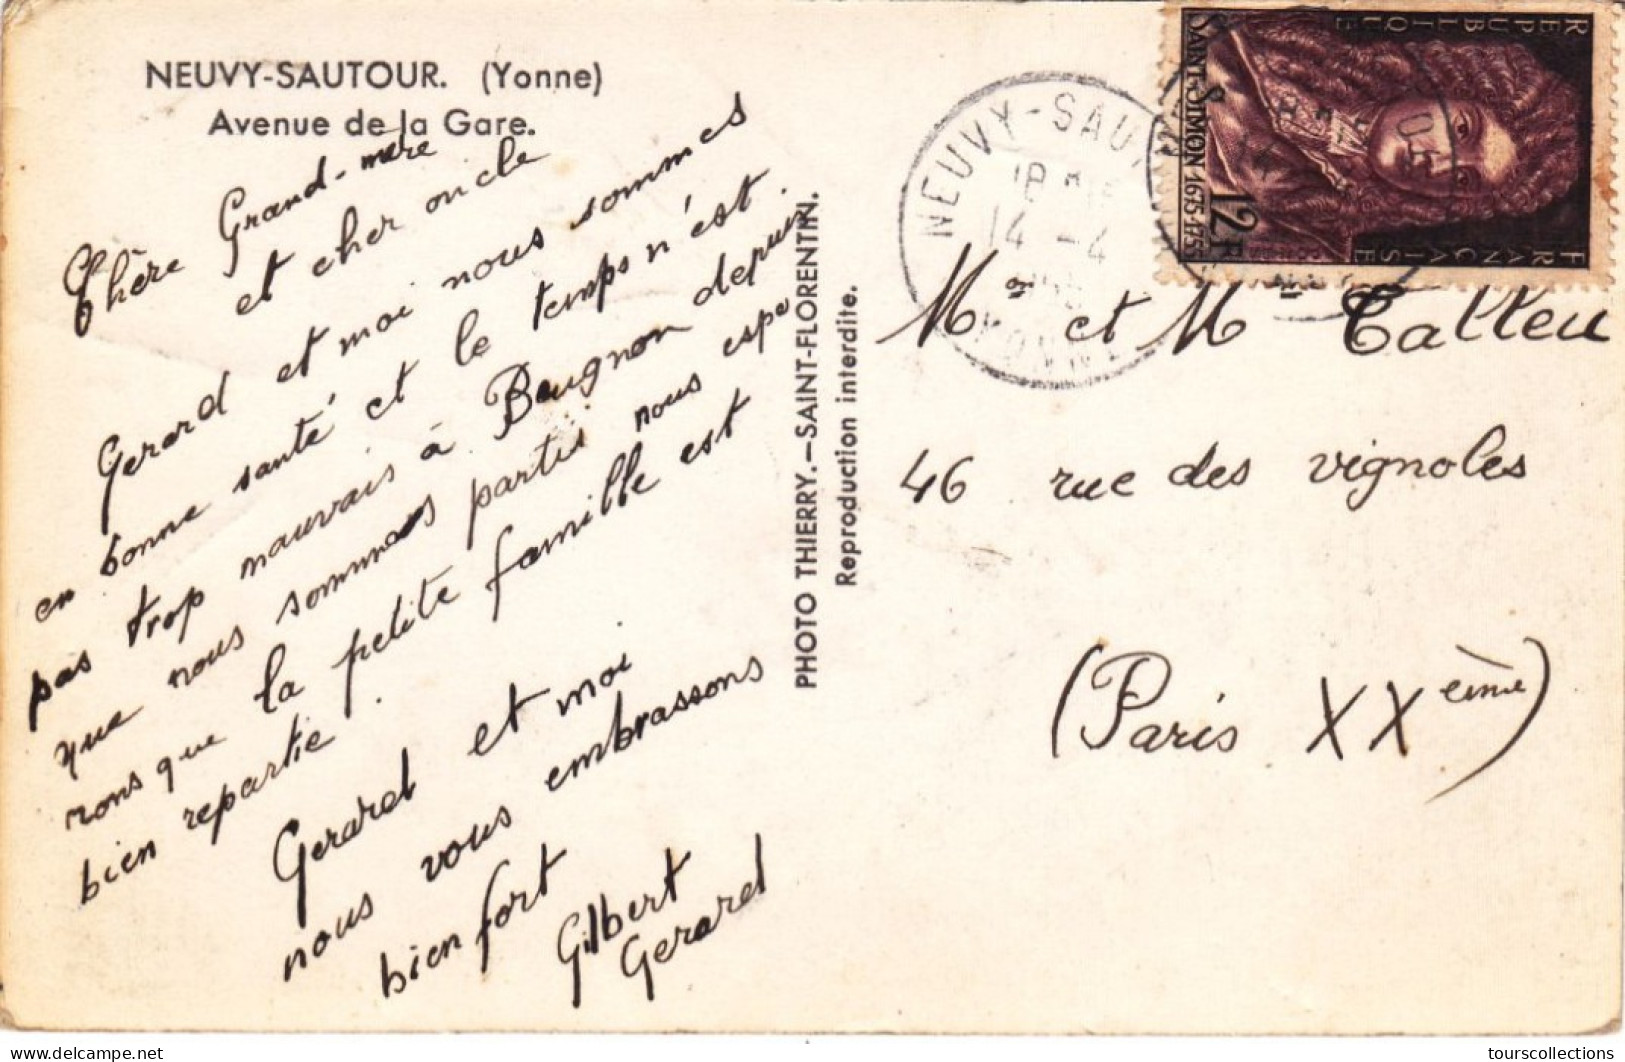 NEUVY-SAUTOUR. (Yonne)
Avenue de la Gare.
Chère Grand-mere
et cher oncle
Gerard et moi nous sommes
en bonne santé et le temps n'est
pas trop mauvais à Beugnon depuis
que nous sommes partis nous espe
rons que la petite famille est
bien repartie.
Gerard et moi
nous vous embrassons
bien fort
Gilbert
Gerard
PHOTO THIERRY.—SAINT-FLORENTIN.
Reproduction interdite.
NEUVY-SAU
18
14 -4
YONNE
REPUBLIQUE
FRANÇAISE
SAINT-SIMON 1675-1755
12F
Mme et M Talleu
46 rue des vignoles
(Paris XXème)
delcampe.net
tourscollections